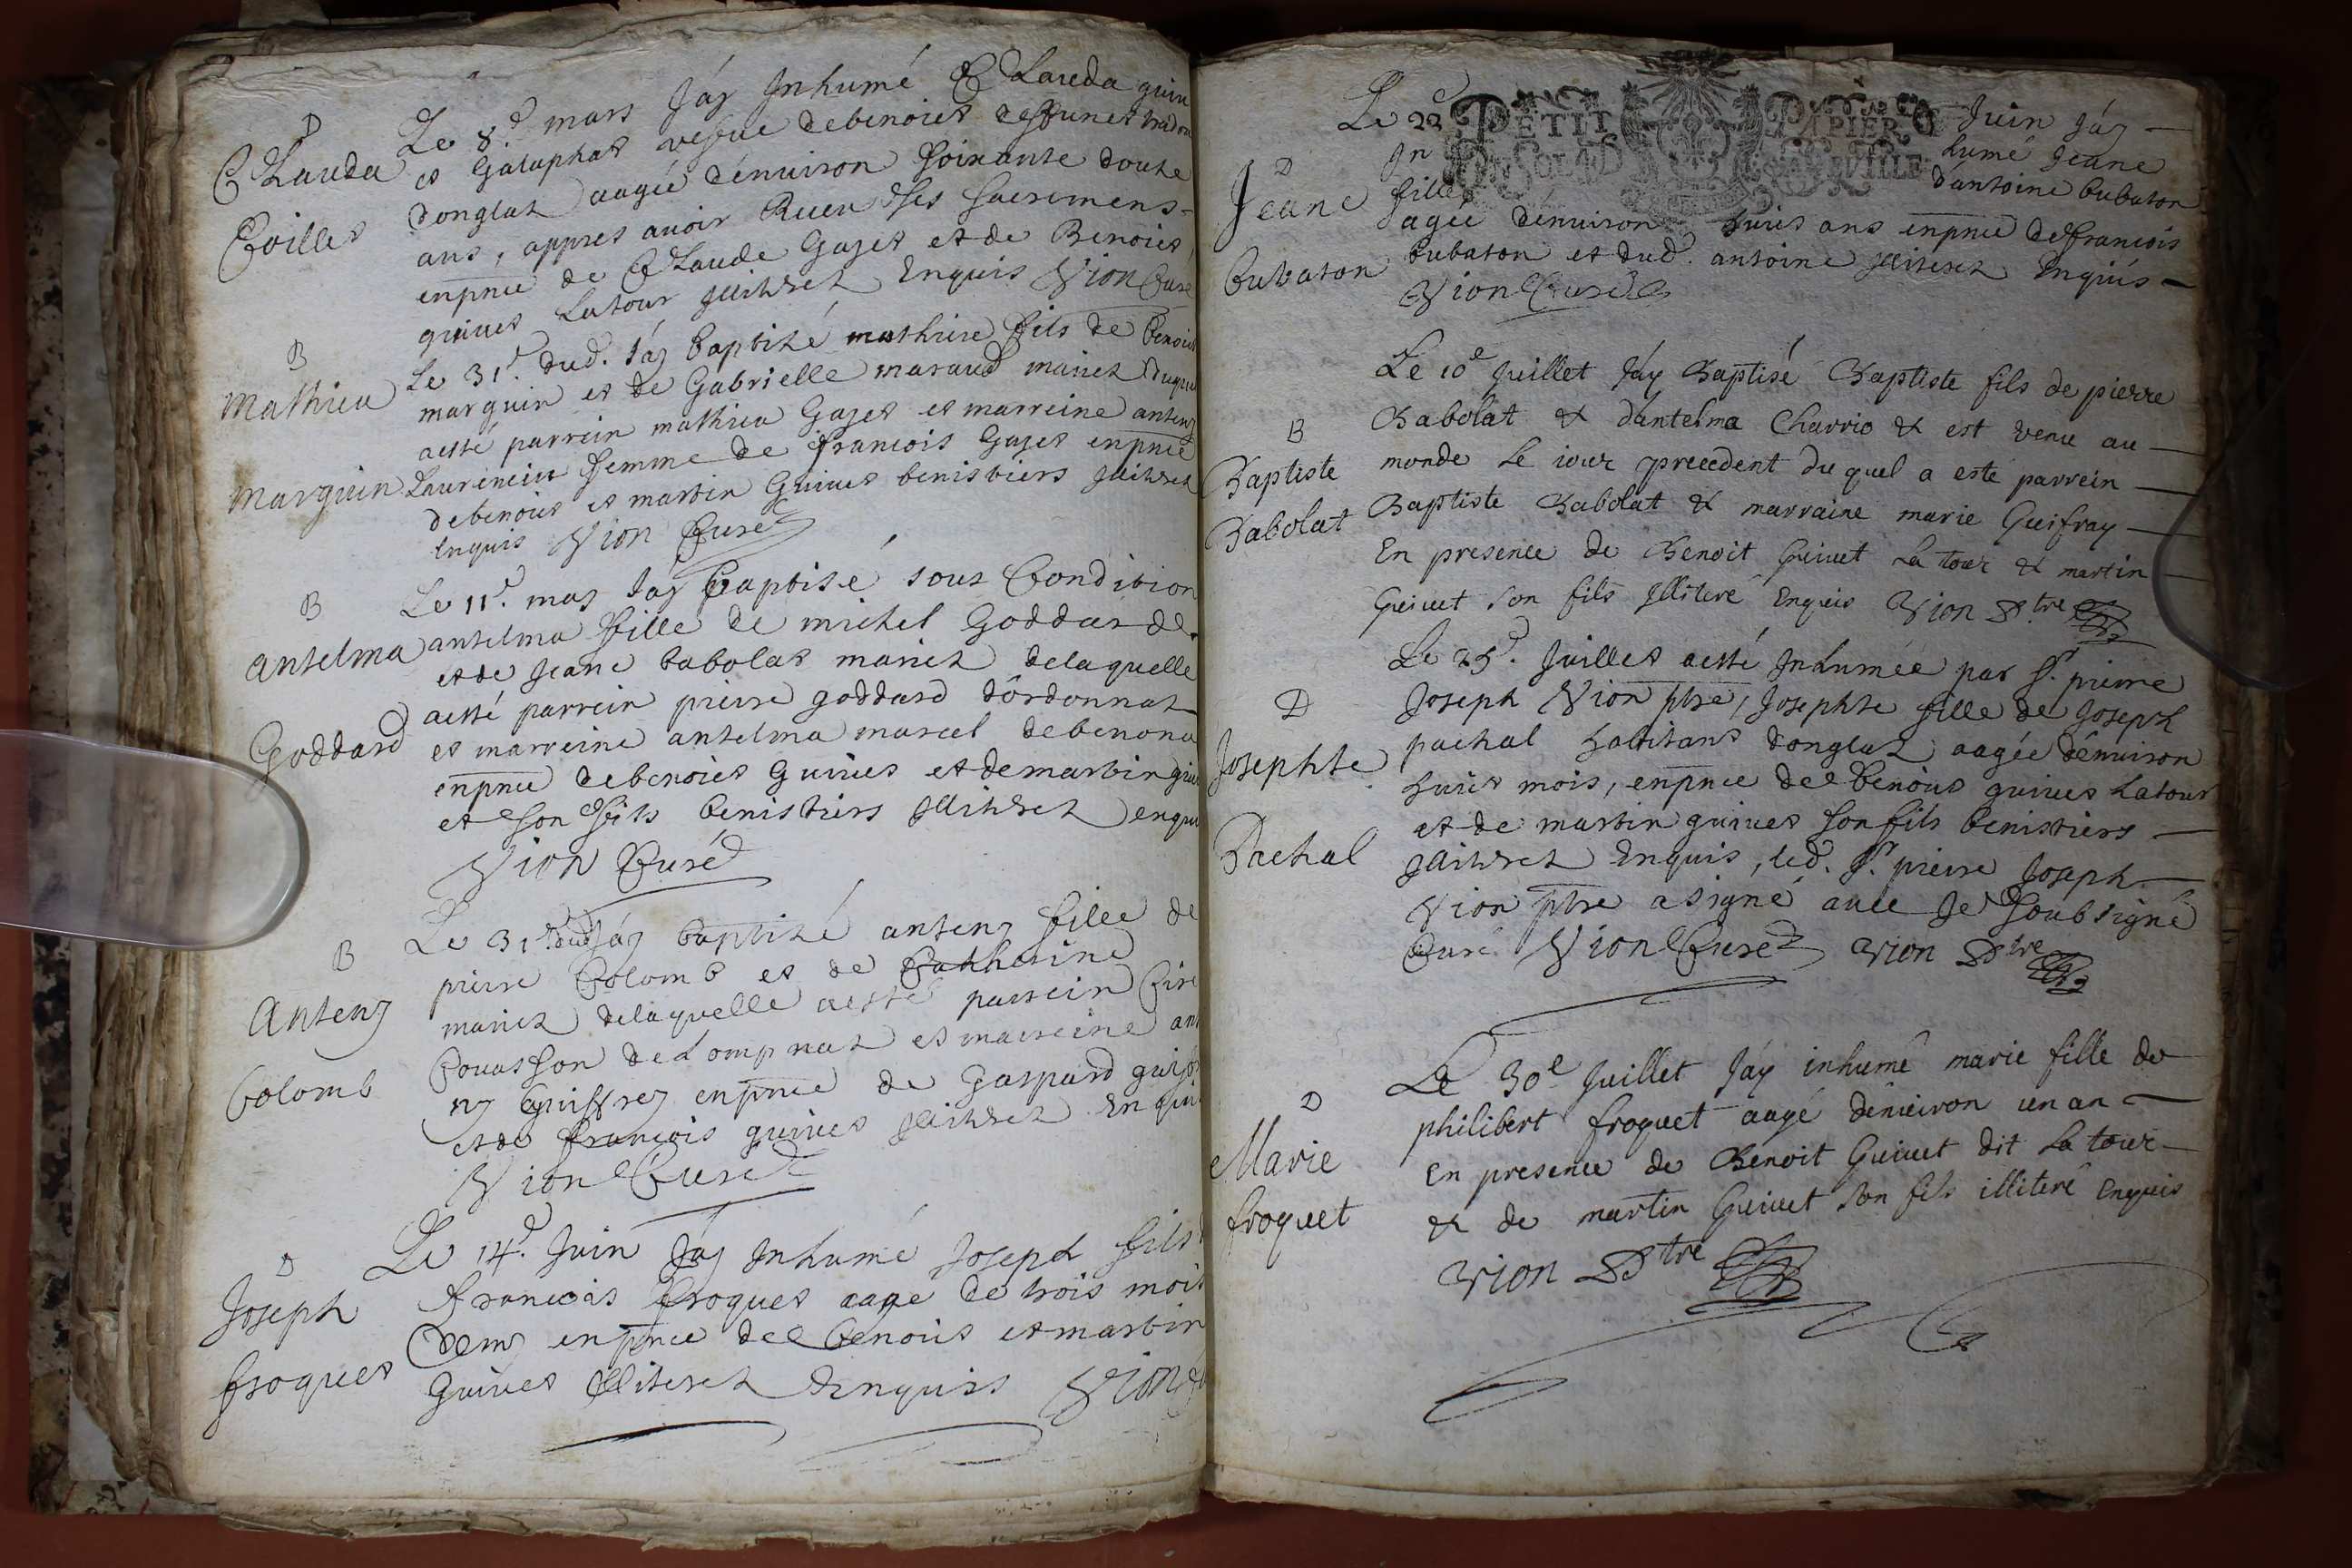 D
Clauda
Le 8.e mars Jáy Inhumé Clauda guiu
et Galaphat vesfue debenoiet deffunct
donglaz aagée dénuiron soixante douze
ans, appres auoir Receu ses sacremens
enpnce de Claude Gaget et de Benoiet
guiuet Latour illitérez Enquis Vion Curé
B
Mathieu
Marguin
Le 31.e dud. Jáy baptizé mathieu fils de benoiet
marguin et de Gabrielle maraud mariez duquel
aesté parrein mathieu Gaget et marreine anteny
Laurencin femme de francois Gaget enpnce
debenoiet et martin Guiuet benistiers illitérez
Enquis Vion Curé
B
Antelma
Goddard
Le 11.e may Jáy baptisé sous Condition
antelma fille de michel Goddard
et de Jeane babolat mariez delaquelle
aesté parrein pierre goddard dôrdonnaz
et marreine antelma marcel debenona
enpnce debenoiet Guiuet et demartin guiu
et son fils benistiers illitérez enquis
Vion Curé
B
Anteny
Colomb
Le 31.e dud Jáy baptizé anteny fille de
pierre Colomb et de Catherine
mariez delaquelle aesté parrein
Pouasson deLompnaz et marreine an
ny Guiffrey enpnce de Gaspard
et de francois guiuet illitérez Enquis
Vion Curé
D
Joseph
froguet
Le 14.e Juin Jáy Inhumé Joseph fils
francois froguet aage de trois mois
demy enpnce de benoiet et martin
Guiuet illiterez Enquis Vion
PETIT PAPIER
Le 22e Juin Jáy
D
Jeane
Cubaton
In humé Jeane
fille dantoine Cubaton
agée dénuiron huict ans enpnce defrancois
Cubaton et dud. antoine illiterez Enquis
Vion Curé
B
Baptiste
Babolat
Le 10e Juillet Jáy Baptisé Baptiste fils de pierre
Babolat & dantelma Charrio & est venu au
monde le iour precedent du quel a esté parrein
Baptiste Babolat & marraine marie Guifray
En presence de Benoit Guiuet La tour & martin
Guiuet son fils Illiteré Enquis Vion Ptre
D
Josephte
Pachal
Le 25.e Juillet aesté Inhumée par Sr. pierre
Joseph Vion ptre, Josephte fille de Joseph
pachal habitant donglaz aagée dênuiron
huict mois, enpnce de benoiet guiuet Latour
et de martin guiuet son fils benistiers
illitérez Enquis, led. Sr. pierre Joseph
Vion ptre a signé auec Je Soubsigné
Curé Vion Curé Vion Ptre
D
Marie
froquet
Le 30e Juillet Jáy inhumé marie fille de
philibert froquet aagé dénuiron un an
En presence de Benoit Guiuet dit La tour
& de martin Guiuet son fils illiteré Enquis
Vion Ptre